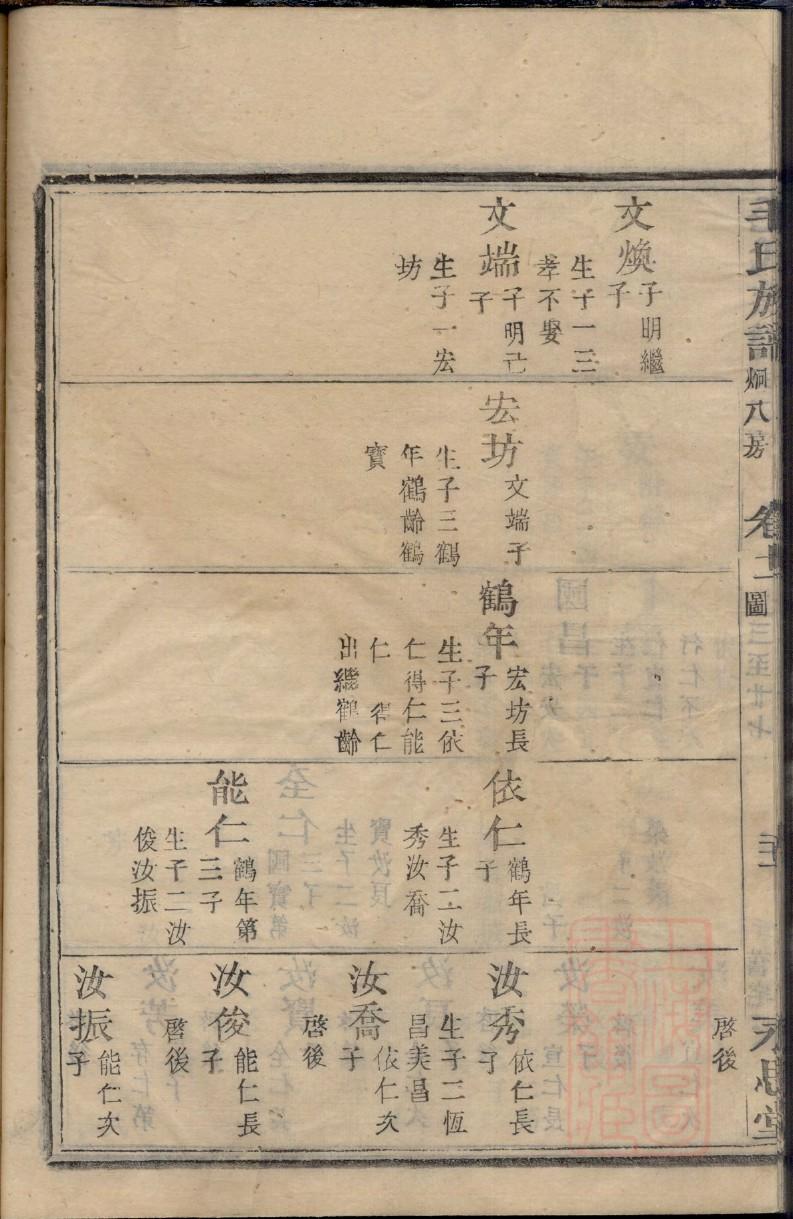 毛氏族譜 炯八房 卷十二 圖 永思堂
文煥 子明繼子
生子一三
孝不娶
文端 子明己子
生子一宏
坊
宏坊 文端子
生子三鶴
年鶴齡鶴
寶
鶴年 宏坊長子
生子三依
仁得仁能
仁 得仁
出繼鶴齡
依仁 鶴年長子
生子二汝
秀汝喬
能仁 鶴年第三子
生子二汝
俊汝振
啓後
汝秀 依仁長子
生子二恆
昌美昌
汝喬 依仁次子
啓後
汝俊 能仁長子
啓後
汝振 能仁次子